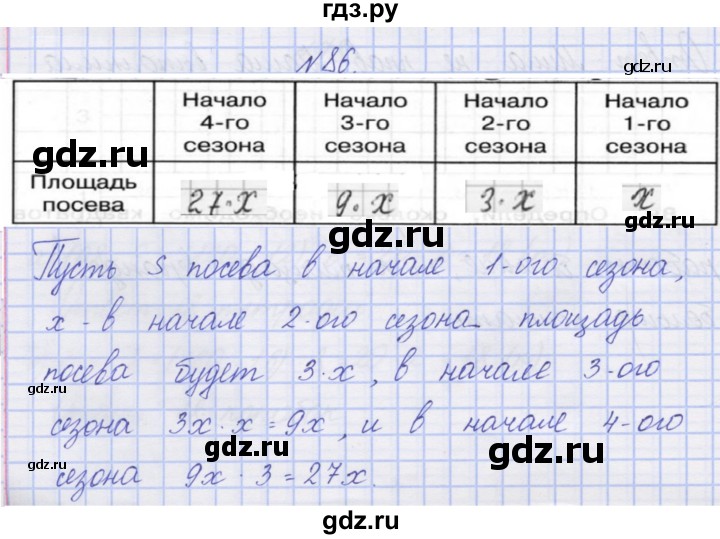 гдз.ру
N86.
Начало 4-го сезона
Начало 3-го сезона
Начало 2-го сезона
Начало 1-го сезона
Площадь посева
27·x
9·x
3·x
x
Пусть S посева в начале 1-ого сезона,
x - в начале 2-ого сезона площадь
посева будет 3·x, в начале 3-ого
сезона 3x·x=9x, и в начале 4-ого
сезона 9x·3=27x.
gdz.ru
gdz.ru
gdz.ru
gdz.ru
gdz.ru
gdz.ru
gdz.ru
gdz.ru
gdz.ru
gdz.ru
gdz.ru
gdz.ru
gdz.ru